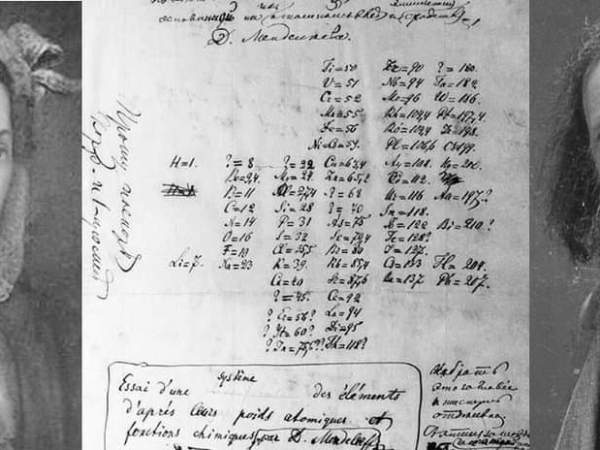 Д. Менделѣева.
Ti=50 Zr=90 ?=180.
V=51 Nb=94 Ta=182.
Cr=52 Mo=96 W=186.
Mn=55 Rh=104,4 Pt=197,4.
Fe=56 Ru=104,4 Ir=198.
Ni=Co=59 Pl=106,6 Os=199.
H=1. ?=8 ?=22 Cu=63,4 Ag=108. Hg=200.
Be=9,4 Mg=24 Zn=65,2 Cd=112
B=11 Al=27,4 ?=68 Ur=116 Au=197?
C=12 Si=28 ?=70 Sn=118.
N=14 P=31 As=75 Sb=122 Bi=210?
O=16 S=32 Se=79,4 Te=128?
F=19 Cl=35,5 Br=80 J=127.
Li=7. Na=23 K=39. Rb=85,4 Cs=133 Tl=204.
Ca=40 Sr=87,6 Ba=137. Pb=207.
?=45. Ce=92
?Er=56? La=94
?Yt=60? Di=95
?In=75,6? Th=118?
Essai d'une système des éléments
d'après leurs poids atomiques et
fonctions chimiques, par D. Mendeleeff